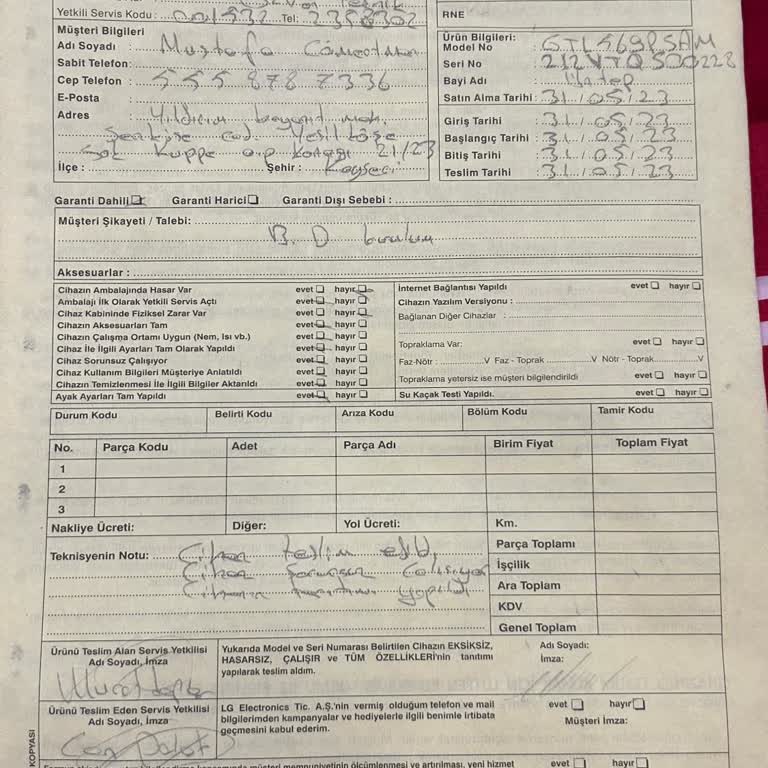 Yetkili Servis Kodu : 001532 Tel:
RNE
Müşteri Bilgileri
Adı Soyadı : Mustafa
Sabit Telefon:
Cep Telefon : 555 878 7336
E-Posta :
Adres : Yıldırım bayazıt mah.
cad. Yeşil köşe
kuppe a.p 21/23
İlçe : Şehir : Kayseri
Ürün Bilgileri:
Model No :
Seri No :
Bayi Adı :
Satın Alma Tarihi : 31/05/23
Giriş Tarihi : 31/05/23
Başlangıç Tarihi : 31/05/23
Bitiş Tarihi : 31/05/23
Teslim Tarihi : 31/05/23
Garanti Dahili Garanti Harici Garanti Dışı Sebebi :
Müşteri Şikayeti / Talebi:
B.D kurulum
Aksesuarlar :
Cihazın Ambalajında Hasar Var evet hayır
Ambalajı İlk Olarak Yetkili Servis Açtı evet hayır
Cihaz Kabininde Fiziksel Zarar Var evet hayır
Cihazın Aksesuarları Tam evet hayır
Cihazın Çalışma Ortamı Uygun (Nem, Isı vb.) evet hayır
Cihaz İle İlgili Ayarları Tam Olarak Yapıldı evet hayır
Cihaz Sorunsuz Çalışıyor evet hayır
Cihaz Kullanım Bilgileri Müşteriye Anlatıldı evet hayır
Cihazın Temizlenmesi İle İlgili Bilgiler Aktarıldı evet hayır
Ayak Ayarları Tam Yapıldı evet hayır
İnternet Bağlantısı Yapıldı evet hayır
Cihazın Yazılım Versiyonu :
Bağlanan Diğer Cihazlar :
Topraklama Var: evet hayır
Faz-Nötr : V Faz - Toprak V Nötr - Toprak V
Topraklama yetersiz ise müşteri bilgilendirildi evet hayır
Su Kaçak Testi Yapıldı. evet hayır
Durum Kodu Belirti Kodu Arıza Kodu Bölüm Kodu Tamir Kodu
No. Parça Kodu Adet Parça Adı Birim Fiyat Toplam Fiyat
1
2
3
Nakliye Ücreti: Diğer: Yol Ücreti: Km.
Teknisyenin Notu: Cihaz teslim edildi,
Cihaz sorunsuz çalışıyor
Cihazın tanıtımı yapıldı
Parça Toplamı
İşçilik
Ara Toplam
KDV
Genel Toplam
Ürünü Teslim Alan Servis Yetkilisi
Adı Soyadı, İmza
Yukarıda Model ve Seri Numarası Belirtilen Cihazın EKSİKSİZ,
HASARSIZ, ÇALIŞIR ve TÜM ÖZELLİKLERİ'nin tanıtımı
yapılarak teslim aldım.
Adı Soyadı:
İmza:
Ürünü Teslim Eden Servis Yetkilisi
Adı Soyadı, İmza
LG Electronics Tic. A.Ş.'nin vermiş olduğum telefon ve mail
bilgilerimden kampanyalar ve hediyelerle ilgili benimle irtibata
geçmesini kabul ederim.
evet hayır
Müşteri İmza:
KOPYASI
evet hayır